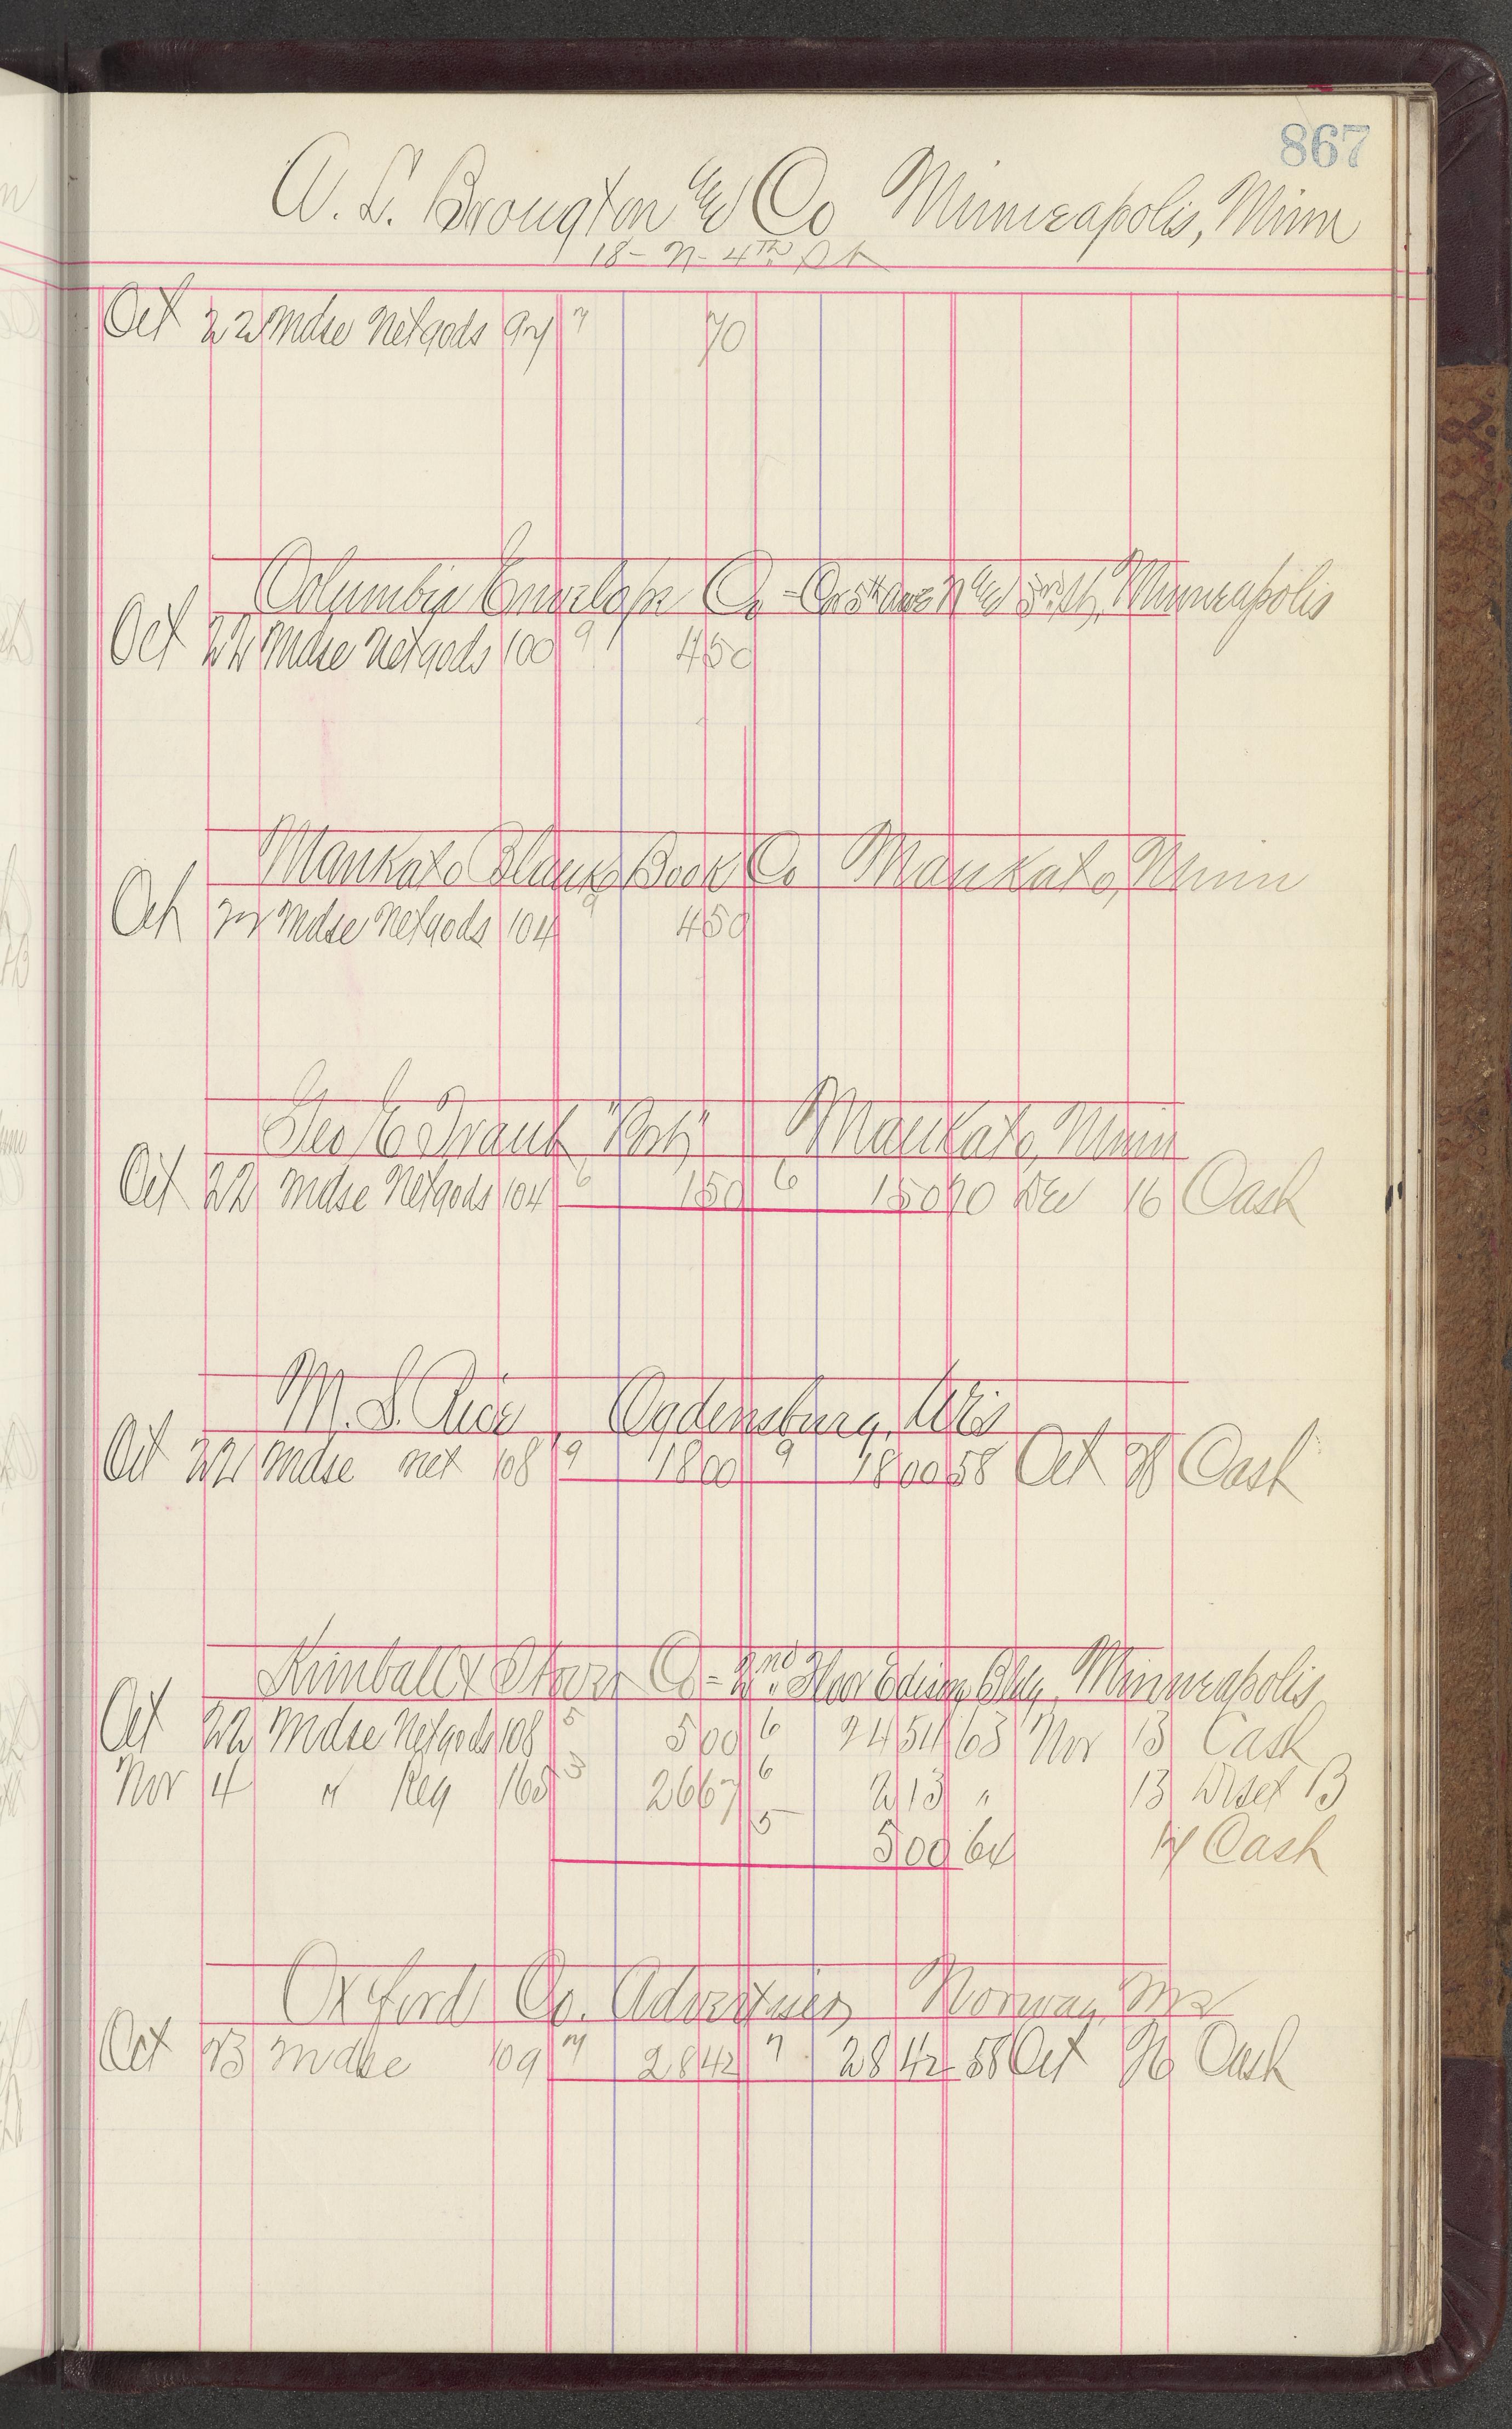 867
A. L. Brougton & Co Minneapolis, Minn
18 - N - 4th St
Oct 22 Mdse Netgods 97 7 70
Columbia Envelope Co - Minneapolis
Oct 22 Mdse Netgods 100 9 450
Mankato Blank Book Co Mankato, Minn
Oct 22 Mdse Netgods 104 9 450
Geo E Mankato, Minn
Oct 22 Mdse Netgods 104 6 150 6 150 70 Dec 16 Cash
M. S. Rice, Ogdensburg, Wis
Oct 22 Mdse net 108 9 1800 9 1800 58 Oct Cash
Kimball & Storr Co - 2nd Floor Edison Bldg, Minneapolis
Oct 22 Mdse Netgods 108 5 500 6 2454 63 Nov 13 Cash
Nov 4 " Reg 165 3 2667 6 213 " 13 Disct B
5 500 64 17 Cash
Oxford Co. Advertiser, Norway, Me
Oct 23 Mdse 109 7 2842 7 2842 58 Oct 26 Cash